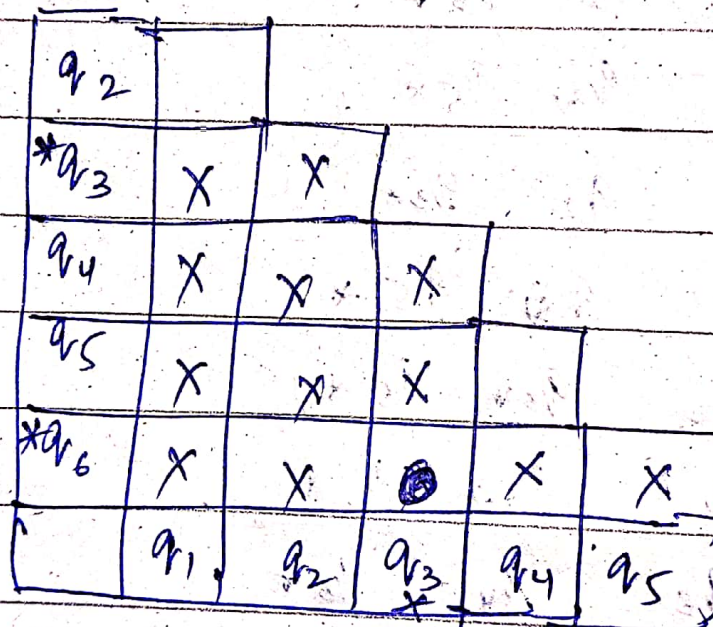 q2
*q3 X X
q4 X X X
q5 X X X
*q6 X X X X
q1 q2 q3 q4 q5
X